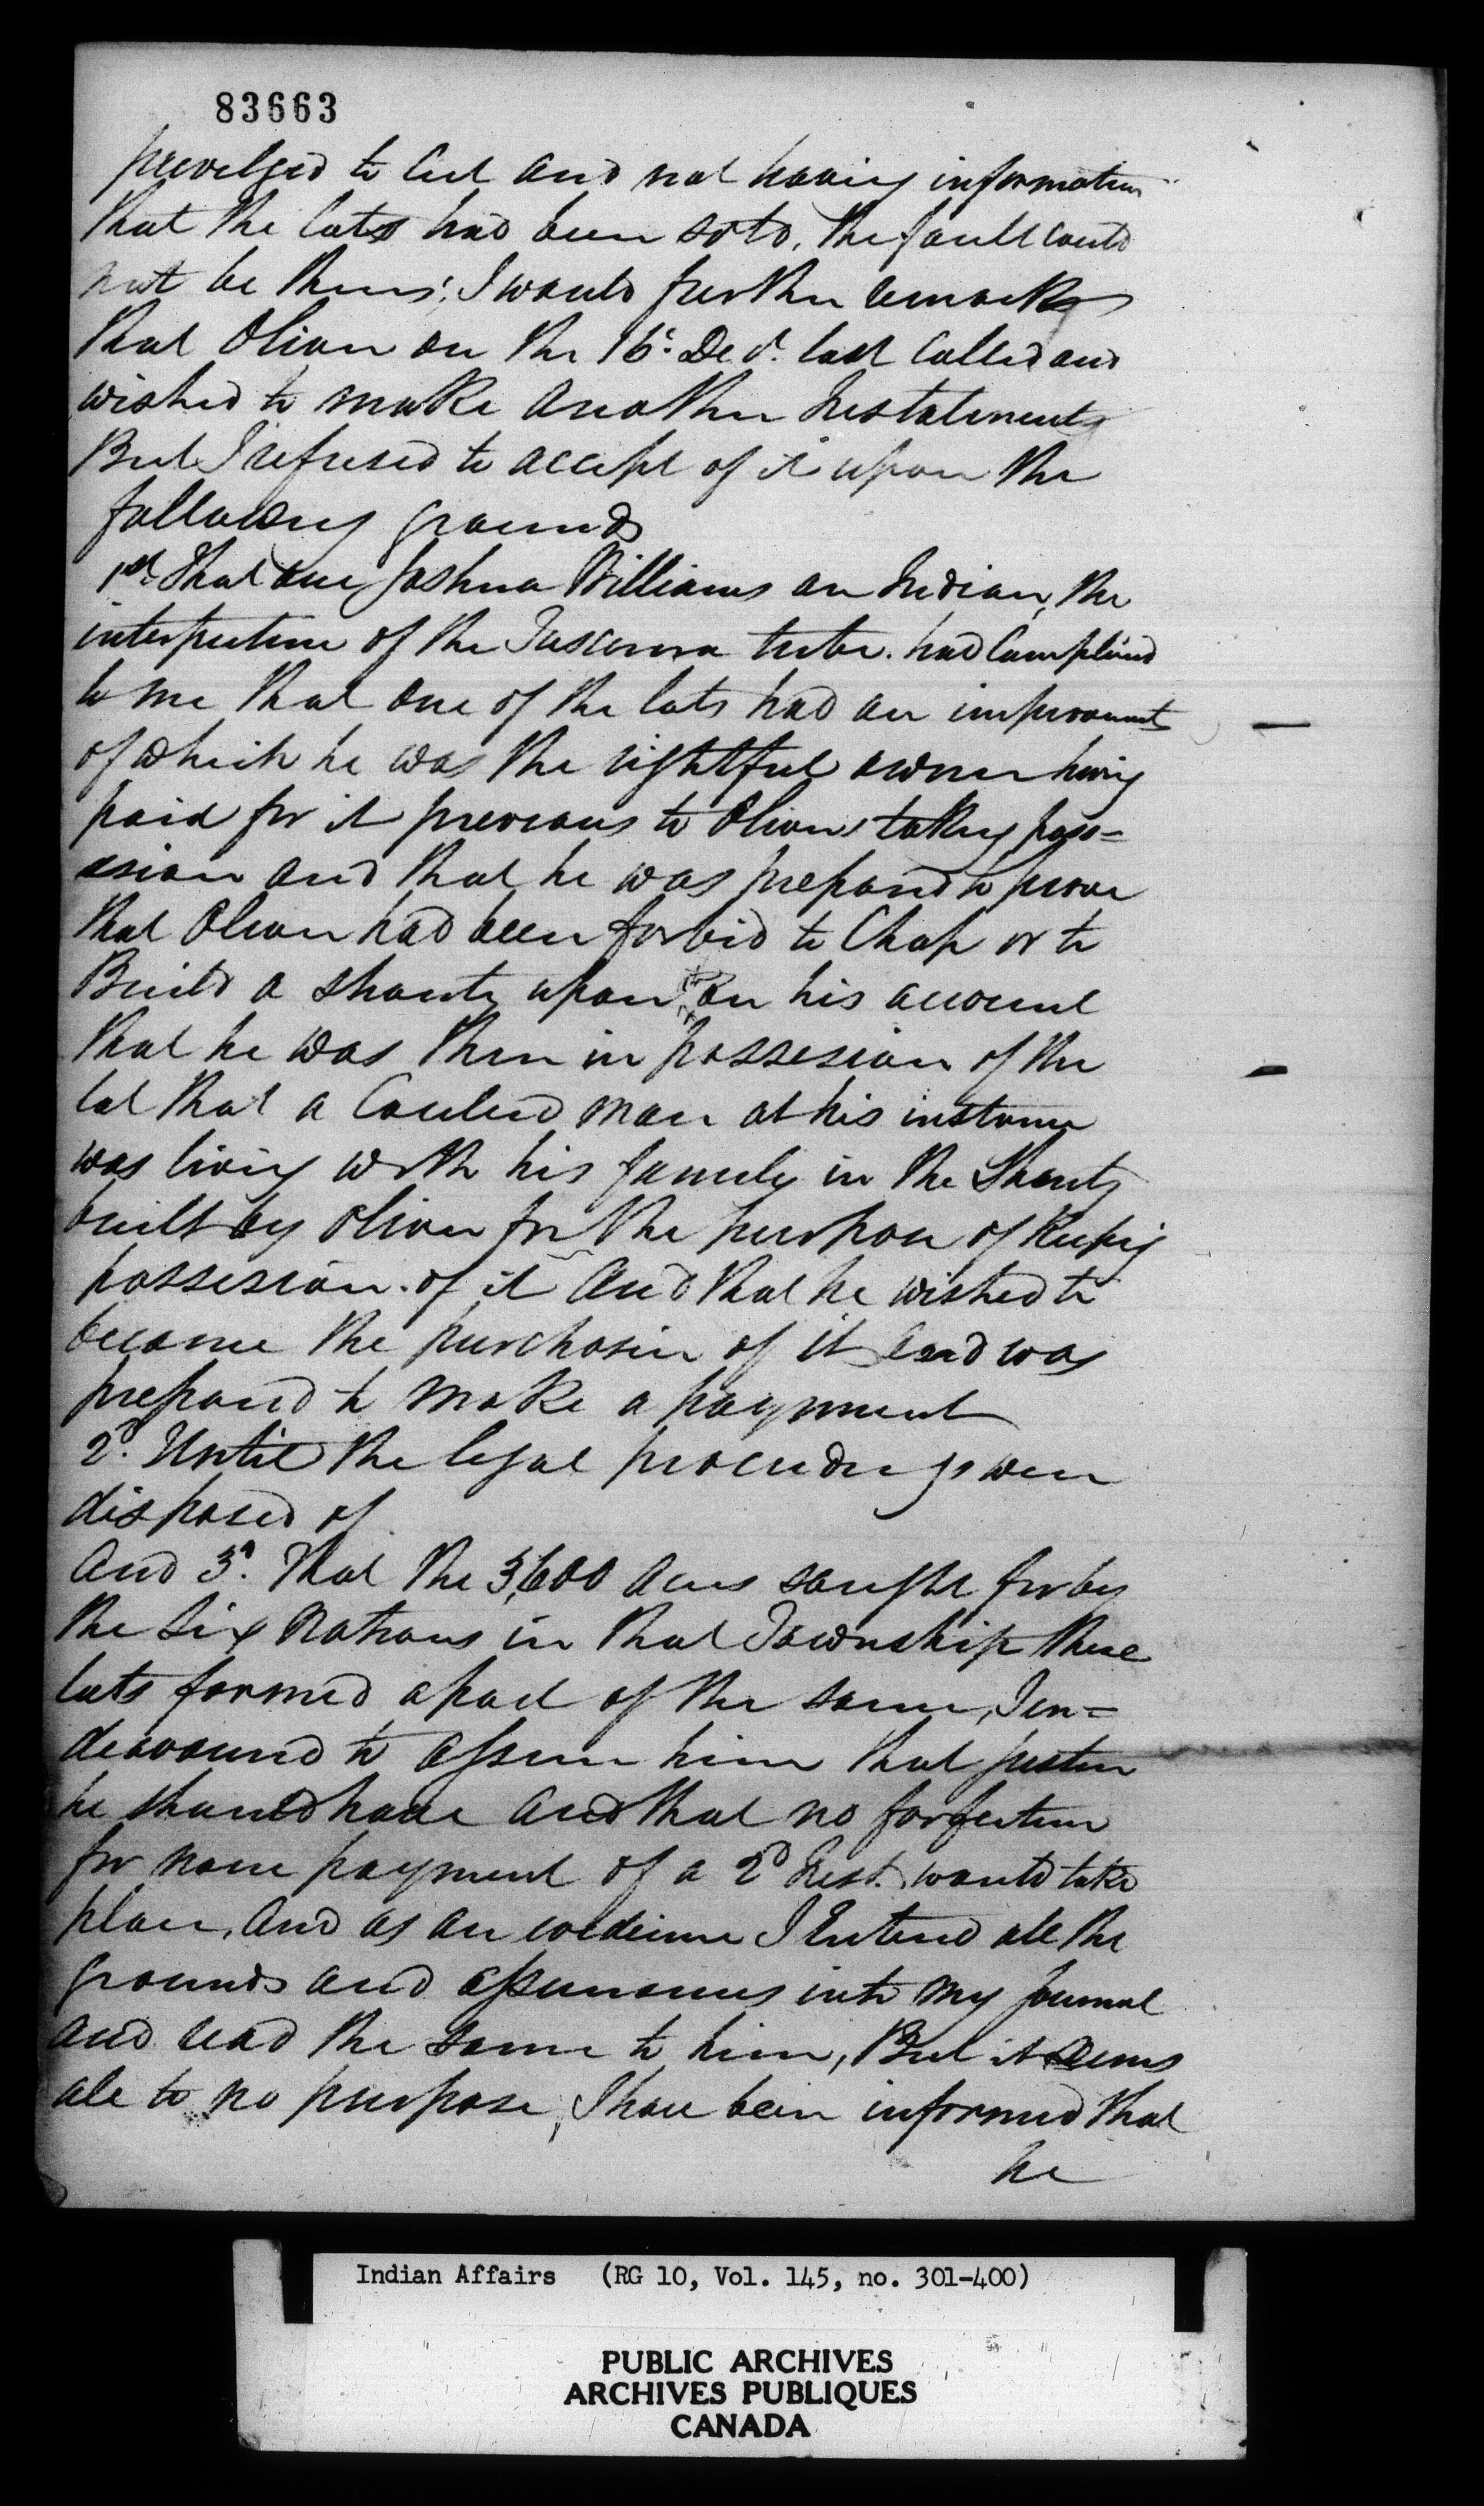 83663
privelged to Cut and not having information
that the lots had been sold, the fault could
not be theirs; I would further remark
that Oliver on the 16th Decr. last called and
wished to make another Instalment
But I refused to accept of it upon the
following grounds
1st That one Joshua Williams an Indian, the
interpreter of the Tuscarora tribe. had Complained
to me that one of the lots had an improvement
of which he was the rightful owner having
paid for it previous to Olivers taking poss=
ession and that he was prepared to prove
that Oliver had been forbid to Chop or to
Build a shanty upon it on his account
that he was then in possession of the
lot that a Coulerd man at his instance
was living with his family in the Shanty
built by Oliver for the purpose of Keeping
possession of it And that he wished to
become the purchaser of it and was
prepared to make a payment
2d. Until the legal proceedings were
disposed of
And 3d. That the 3,600 Acres sought for by
the Six Nations in that Township these
lots formed a part of the same, I en=
deavoured to assure him that justice
he should have and that no forfeiture
for none payment of a 2d Inst. would take
place, And as an evidence I Entered all the
grounds and assurances into my Journal
and read the same to him, But it seems
all to no purpose, I have been informed that
he
Indian Affairs (RG 10, Vol. 145, no. 301-400)
PUBLIC ARCHIVES
ARCHIVES PUBLIQUES
CANADA